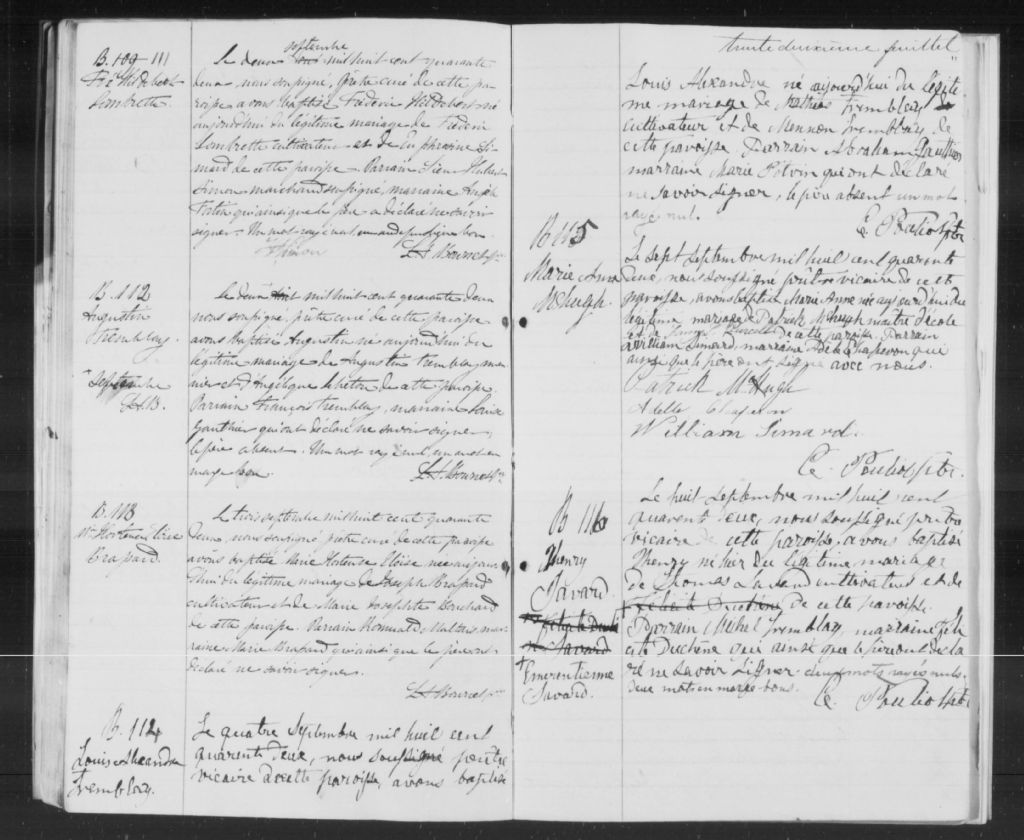 B. 109 - 111
Fré Hildebert
Lombrette.
septembre
Le deux mil huit cent quarante
deux nous soussigné, prêtre curé de cette pa-
roisse avons baptisé Fréderic Hildebert né
aujourd'hui du légitime mariage de Fréderic
Lombrette cultivateur et de Euphrosine Si-
mard de cette paroisse. Parrain Sieur Hubert
Simon marchand soussigné, marraine
qui ainsi que le père a déclaré ne savoir
signer. Un mot rayé nul, bon.
HSimon
B. 112
Augustin
Tremblay.
septembre
Le deux mil huit cent quarante deux
nous soussigné, prêtre curé de cette paroisse
avons baptisé Augustin né aujourd'hui du
légitime mariage de Augustin Tremblay me-
nier et d'Angélique de cette paroisse.
Parrain François Tremblay, marraine Louise
Gauthier qui ont déclaré ne savoir signer,
le père absent. Un mot rayé nul, un mot en
marge bon.
B. 113
Mie Hortense
Brassard.
Le trois septembre mil huit cent quarante
deux, nous soussigné prêtre curé de cette paroisse
avons baptisé Marie Hortense née aujour-
d'hui du légitime mariage de Joseph Brassard
cultivateur et de Marie Josephte Bouchard
de cette paroisse. Parrain Romuald mar-
raine Marie Brassard qui ainsi que le père ont
déclaré ne savoir signer.
B. 114
Louis Alexandre
Tremblay.
Le quatre Septembre mil huil cent
quarente deux, nous soussigné prêtre
vicaire de cette paroisse, avons baptisé
trente deuxième feuillet
Louis Alexandre né aujourd'hui du légiti
me mariage de Mathias Tremblay
cultivateur et de Mennon Tremblay de
cette paroisse. Parrain Abraham Gauthier
marraine Marie Potvin qui ont déclaré
ne savoir signer, le père absent un mot
rayé nul.
C. Pouliot Ptr.
B 115
Marie Anne
McHugh.
Le sept septembre mil huil cent quarent
deux, nous soussigné prêtre vicaire de cet
paroisse, avons baptisé Marie Anne née aujourd'hui du
légitime mariage de Patrick McHugh maître d'école
et de de cette paroisse. Parrain
William Simard, marraine Adele Chaperon qui
ainsi que le père ont signé avec nous.
Patrick McHugh
Adelle Chaperon
William Simard.
C. Pouliot Ptr.
B 116
Thenry
Savard.
Felicité
Savard
+ Emerentienne
Savard.
Le huit septembre mil huil cent
quarente deux, nous soussigné prêtre
vicaire de cette paroisse avons baptisé
Thenry né hier du légitime mariage
de Thomas Savard cultivateur et de
Felicité Duchène de cette paroisse.
Parrain Michel Tremblay, marraine Féli
cité Duchène qui ainsi que le père ont décla
ré ne savoir signer. deux mots rayés nuls.
deux mots en marge bons.
C. Pouliot Ptr.